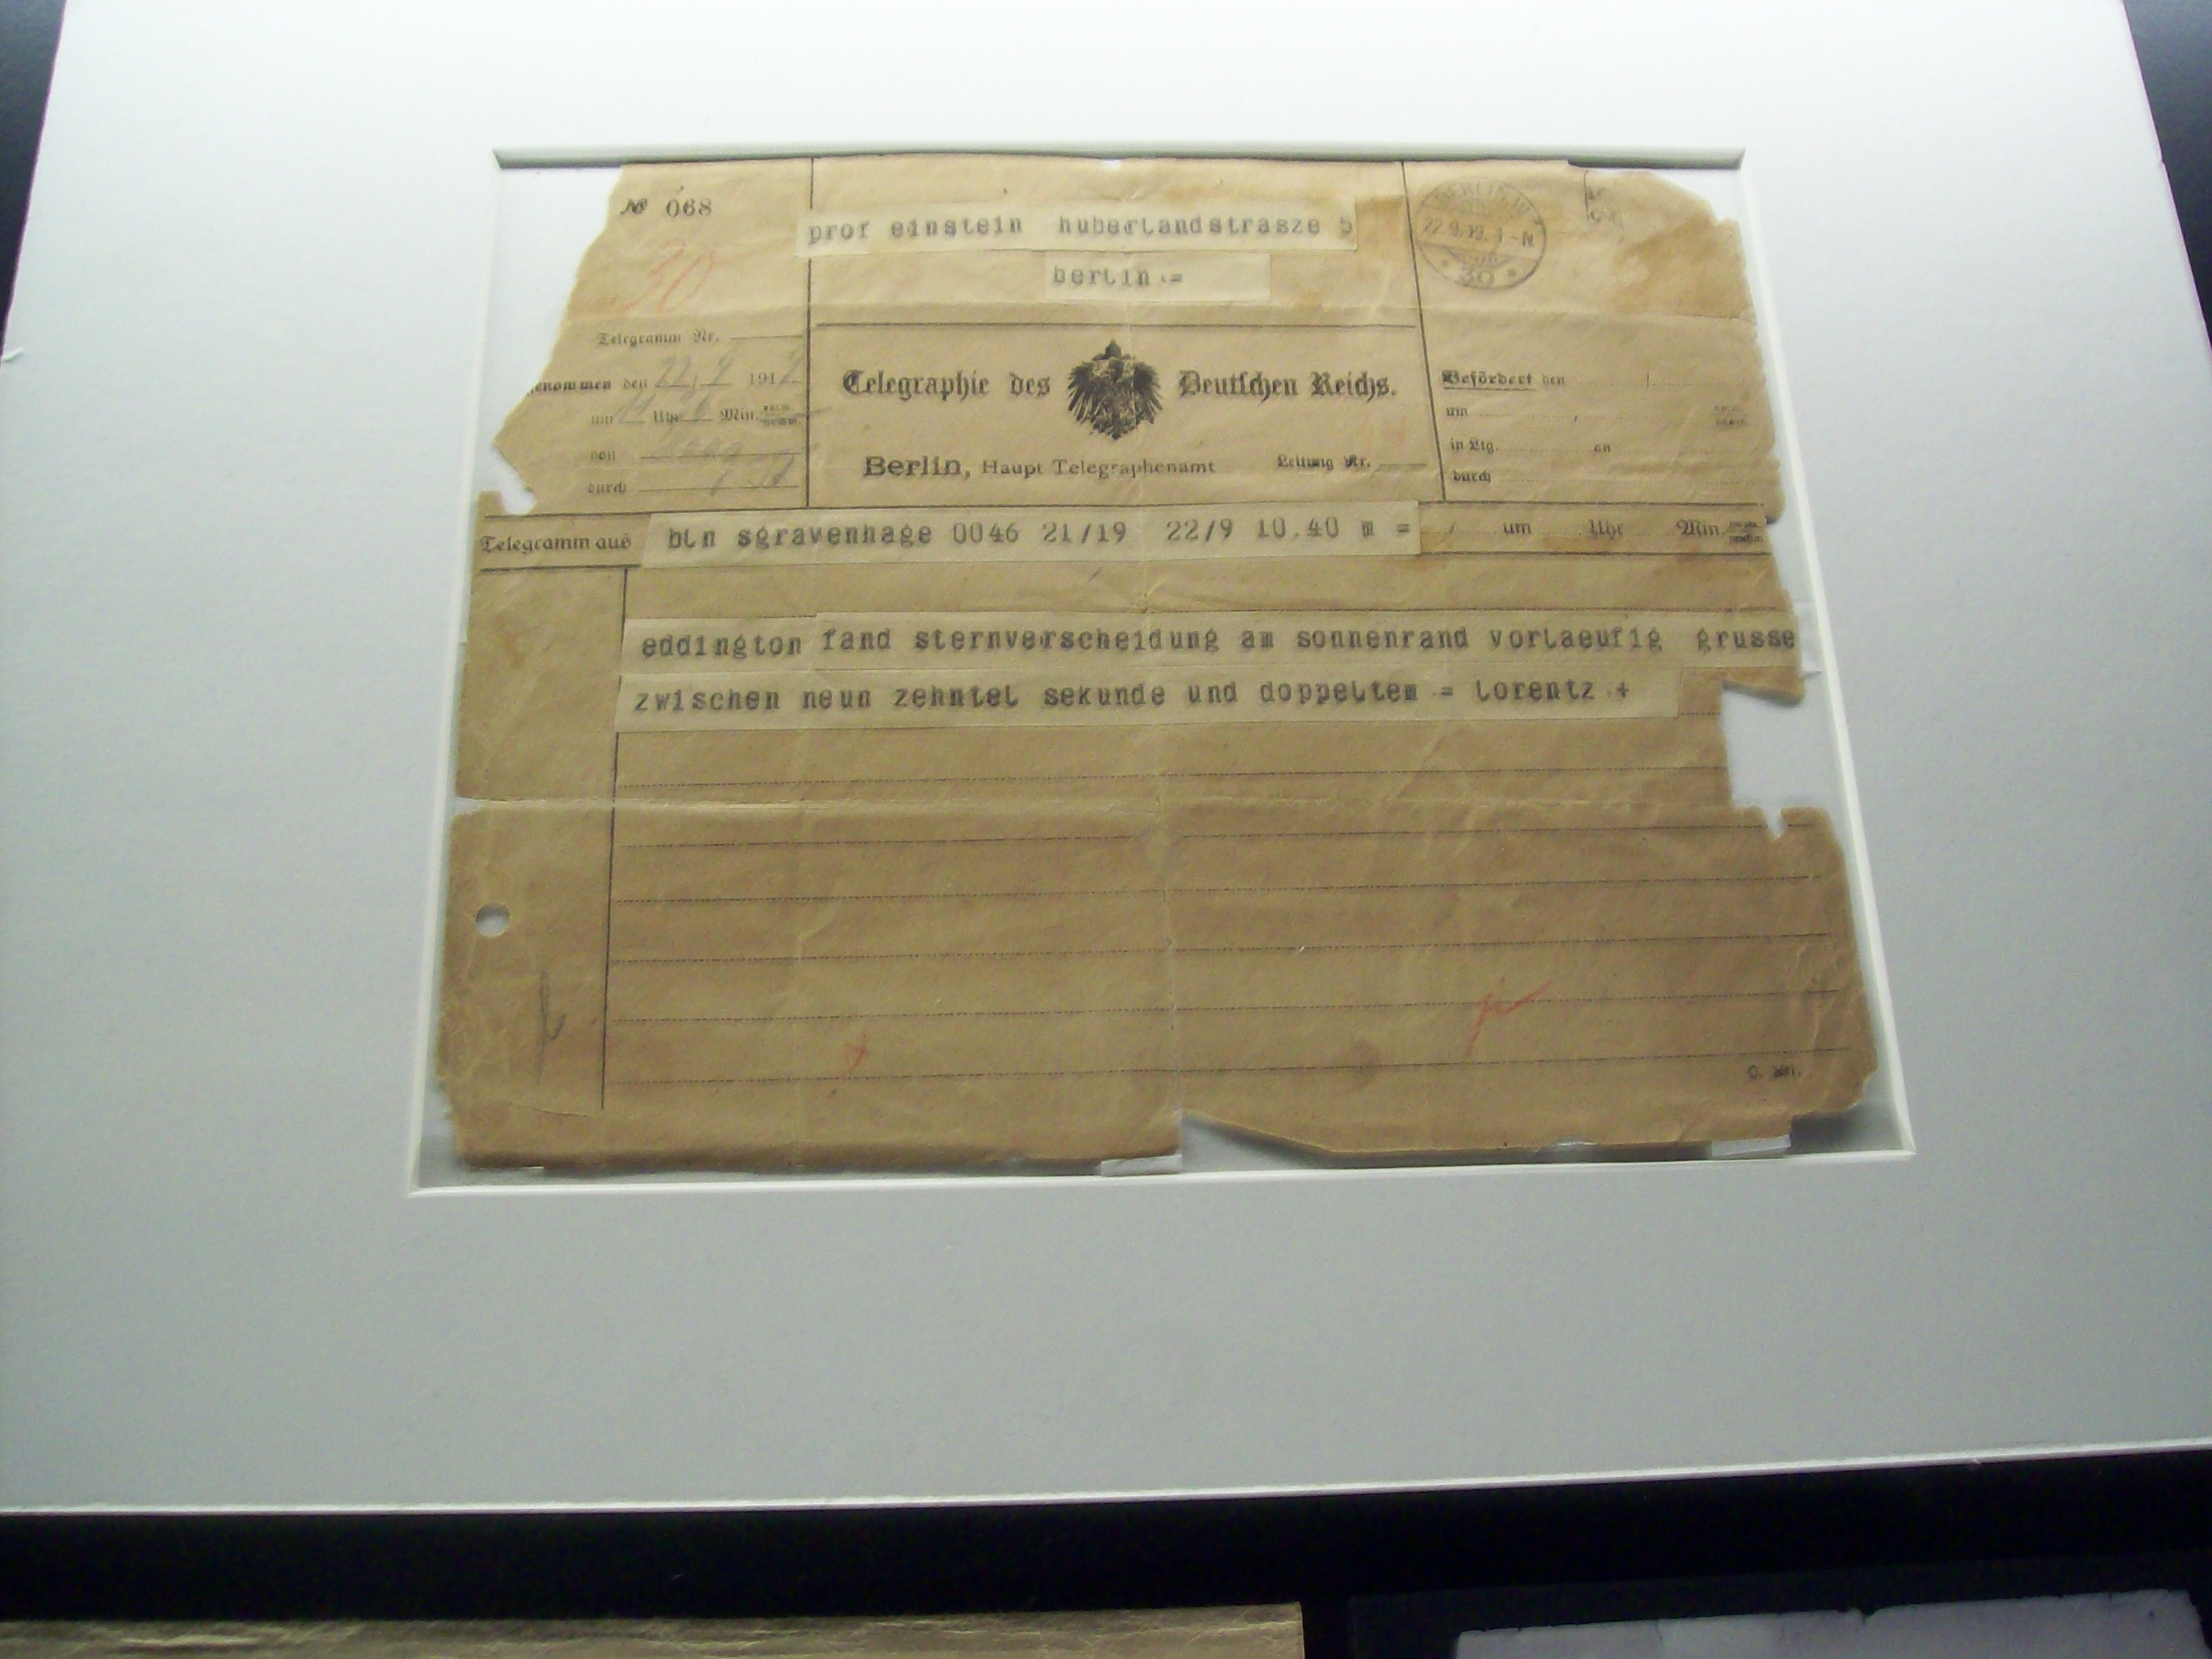 № 068
prof einstein hubertandstrasze 5
berlin.=
BERLIN.W
22.9.19.1-N
* 30 *
30
Telegramm Nr.
enommen den 22/9 1919
um 11 Uhr 6 Min.
von Haag
durch
Telegraphie des Deutschen Reichs.
Berlin, Haupt Telegraphenamt Leitung Nr.
Befördert den
um
in Ltg. an
durch
Telegramm aus bln sgravenhage 0046 21/19 22/9 10.40 m = um Uhr Min.
eddington fand sternverscheidung am sonnenrand vorlaeufig grusse
zwischen neun zehntel sekunde und doppeltem = lorentz +